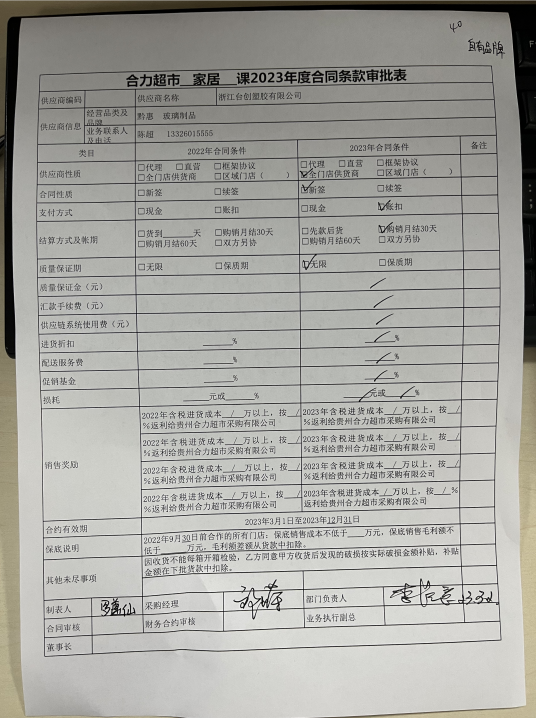 40
自有品牌
合力超市 家居 课2023年度合同条款审批表
供应商编码 供应商名称 浙江台创塑胶有限公司
供应商信息 经营品类及品牌 黔惠 玻璃制品
业务联系人及电话 陈超 13326015555
类目 2022年合同条件 2023年合同条件 备注
供应商性质 □代理 □直营 □框架协议 □代理 □直营 □框架协议
□全门店供货商 □区域门店（ ） ☑全门店供货商 □区域门店（ ）
合同性质 □新签 □续签 ☑新签 □续签
支付方式 □现金 □账扣 □现金 ☑账扣
结算方式及帐期 □货到____天 □购销月结30天 □先款后货 ☑购销月结30天
□购销月结60天 □双方另协 □购销月结60天 □双方另协
质量保证期 □无限 □保质期 ☑无限 □保质期
质量保证金（元） /
汇款手续费（元） /
供应链系统使用费（元） /
进货折扣 ____% /%
配送服务费 ____% /%
促销基金 ____% /%
损耗 ____元或____% /元或/%
销售奖励 2022年含税进货成本_/_万以上，按_/_%返利给贵州合力超市采购有限公司 2023年含税进货成本_/_万以上，按_/_%返利给贵州合力超市采购有限公司
2022年含税进货成本_/_万以上，按_/_%返利给贵州合力超市采购有限公司 2023年含税进货成本_/_万以上，按_/_%返利给贵州合力超市采购有限公司
2022年含税进货成本_/_万以上，按_/_%返利给贵州合力超市采购有限公司 2023年含税进货成本_/_万以上，按_/_%返利给贵州合力超市采购有限公司
2022年含税进货成本_/_万以上，按_/_%返利给贵州合力超市采购有限公司 2023年含税进货成本_/_万以上，按_/_%返利给贵州合力超市采购有限公司
合约有效期 2023年3月1日至2023年12月31日
保底说明 2022年9月30日前合作的所有门店；保底销售成本不低于____万元，保底销售毛利额不
低于____万元，毛利额差额从货款中扣除。
其他未尽事项 因收货不能每箱开箱检验，乙方同意甲方收货后发现的破损按实际破损金额补贴，补贴
金额在下批货款中扣除。
制表人 采购经理 部门负责人
合同审核 财务合约审核 业务执行副总
董事长